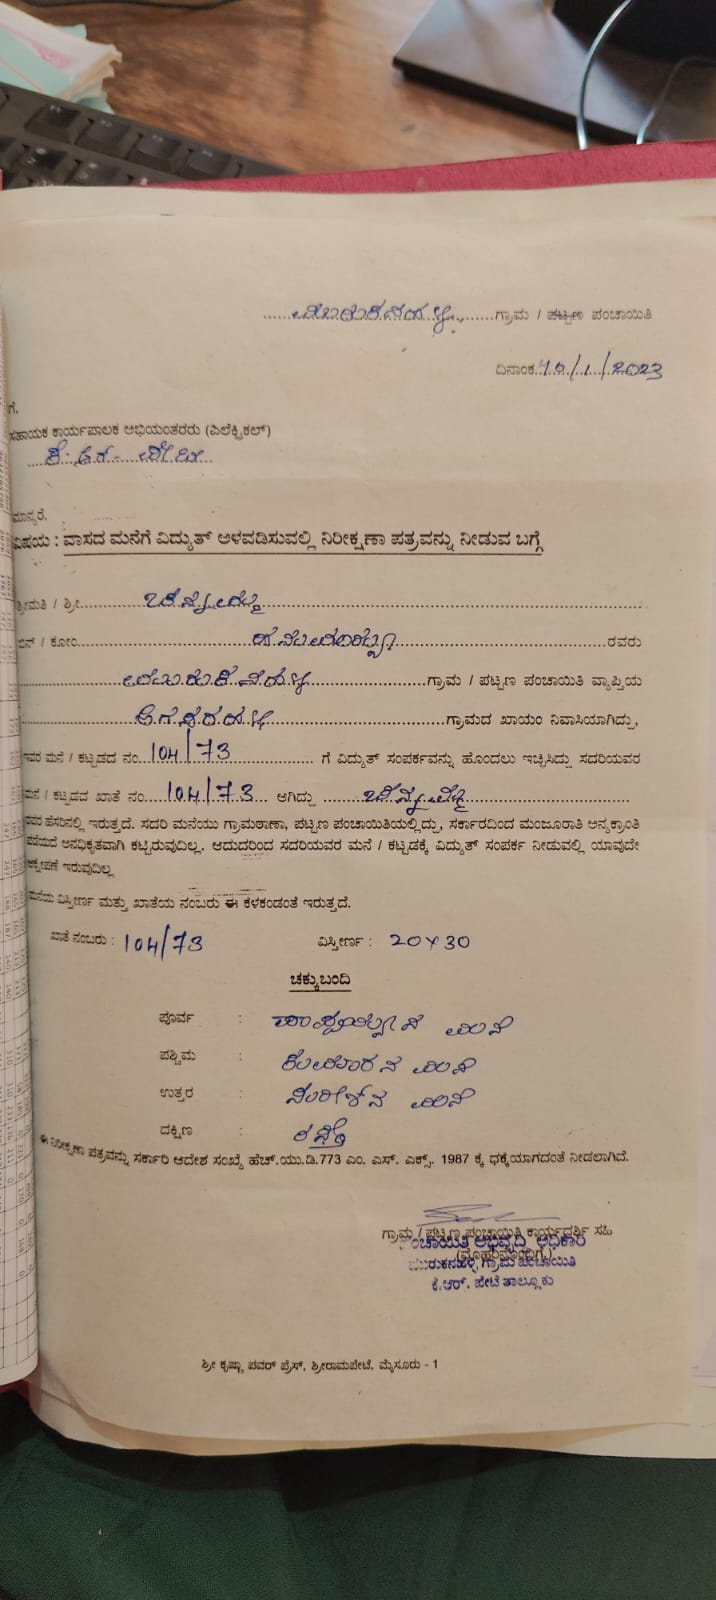 ಮುರುಕನಹಳ್ಳಿ ಗ್ರಾಮ / ಪಟ್ಟಣ ಪಂಚಾಯಿತಿ
ದಿನಾಂಕ 10/1/2023
ಗೆ,
ಸಹಾಯಕ ಕಾರ್ಯಪಾಲಕ ಅಭಿಯಂತರರು (ಎಲೆಕ್ಟ್ರಿಕಲ್)
ಕೆ.ಆರ್. ಪೇಟೆ
ಮಾನ್ಯರೆ,
ವಿಷಯ : ವಾಸದ ಮನೆಗೆ ವಿದ್ಯುತ್ ಅಳವಡಿಸುವಲ್ಲಿ ನಿರೀಕ್ಷಣಾ ಪತ್ರವನ್ನು ನೀಡುವ ಬಗ್ಗೆ
ಶ್ರೀಮತಿ / ಶ್ರೀ
ಬಿನ್ / ಕೋಂ ರವರು
ಮುರುಕನಹಳ್ಳಿ ಗ್ರಾಮ / ಪಟ್ಟಣ ಪಂಚಾಯಿತಿ ವ್ಯಾಪ್ತಿಯ
ಗ್ರಾಮದ ಖಾಯಂ ನಿವಾಸಿಯಾಗಿದ್ದು,
ಇವರ ಮನೆ / ಕಟ್ಟಡದ ನಂ. 104/73 ಗೆ ವಿದ್ಯುತ್ ಸಂಪರ್ಕವನ್ನು ಹೊಂದಲು ಇಚ್ಛಿಸಿದ್ದು ಸದರಿಯವರ
ಮನೆ / ಕಟ್ಟಡದ ಖಾತೆ ನಂ. 104/73 ಆಗಿದ್ದು
ರವರ ಹೆಸರಿನಲ್ಲಿ ಇರುತ್ತದೆ. ಸದರಿ ಮನೆಯು ಗ್ರಾಮಠಾಣಾ, ಪಟ್ಟಣ ಪಂಚಾಯಿತಿಯಲ್ಲಿದ್ದು, ಸರ್ಕಾರದಿಂದ ಮಂಜೂರಾತಿ ಅನ್ನಕ್ರಾಂತಿ
ಪಡೆಯದೆ ಅನಧಿಕೃತವಾಗಿ ಕಟ್ಟಿರುವುದಿಲ್ಲ. ಆದುದರಿಂದ ಸದರಿಯವರ ಮನೆ / ಕಟ್ಟಡಕ್ಕೆ ವಿದ್ಯುತ್ ಸಂಪರ್ಕ ನೀಡುವಲ್ಲಿ ಯಾವುದೇ
ಆಕ್ಷೇಪಣೆ ಇರುವುದಿಲ್ಲ
ಮನೆಯ ವಿಸ್ತೀರ್ಣ ಮತ್ತು ಖಾತೆಯ ನಂಬರು ಈ ಕೆಳಕಂಡಂತೆ ಇರುತ್ತದೆ.
ಖಾತೆ ನಂಬರು : 104/73 ವಿಸ್ತೀರ್ಣ : 20X30
ಚಕ್ಕುಬಂದಿ
ಪೂರ್ವ : ಮನೆ
ಪಶ್ಚಿಮ : ಕುಮಾರನ ಮನೆ
ಉತ್ತರ : ಮನೆ
ದಕ್ಷಿಣ : ರಸ್ತೆ
ಈ ನಿರೀಕ್ಷಣಾ ಪತ್ರವನ್ನು ಸರ್ಕಾರಿ ಆದೇಶ ಸಂಖ್ಯೆ ಹೆಚ್.ಯು.ಡಿ.773 ಎಂ. ಎಸ್. ಎಕ್ಸ್. 1987 ಕ್ಕೆ ಧಕ್ಕೆಯಾಗದಂತೆ ನೀಡಲಾಗಿದೆ.
ಗ್ರಾಮ / ಪಟ್ಟಣ ಪಂಚಾಯಿತಿ ಕಾರ್ಯದರ್ಶಿ ಸಹಿ
ಪಂಚಾಯಿತಿ ಅಭಿವೃದ್ಧಿ ಅಧಿಕಾರಿ
(ಮೊಹರಿನೊಂದಿಗೆ)
ಮುರುಕನಹಳ್ಳಿ ಗ್ರಾಮ ಪಂಚಾಯಿತಿ
ಕೆ.ಆರ್. ಪೇಟೆ ತಾಲ್ಲೂಕು
ಶ್ರೀ ಕೃಷ್ಣಾ ಪವರ್ ಪ್ರೆಸ್, ಶ್ರೀರಾಮಪೇಟೆ, ಮೈಸೂರು - 1